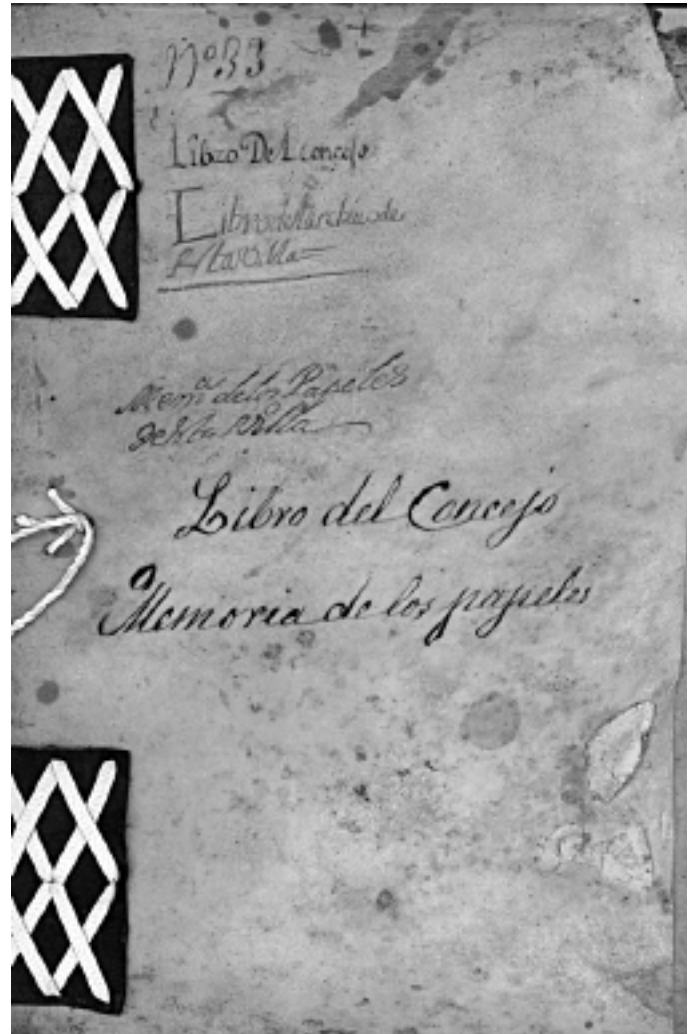 Nº 33
Libro Del concejo
Libro del archivo de
esta Villa
Memª de los Papeles
de esta Villa
Libro del Concejo
Memoria de los papeles